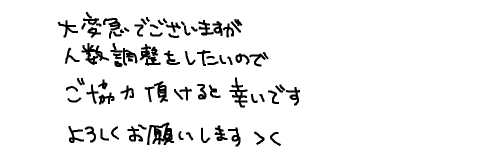 大変急でございますが
人数調整をしたいので
ご協力頂けると幸いです
よろしくお願いします >く